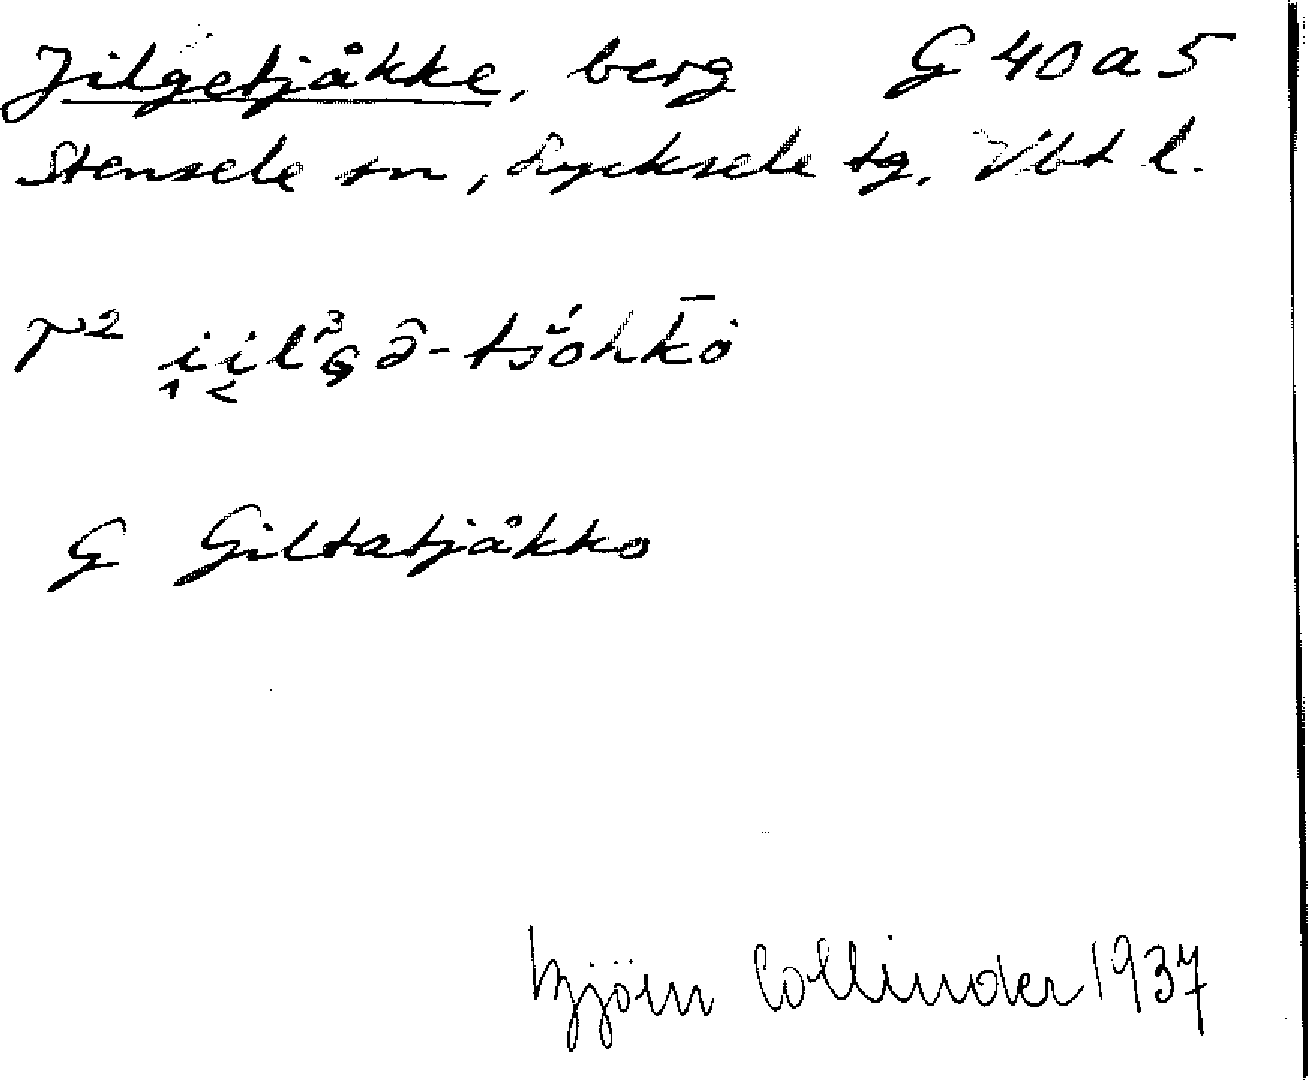 Jilgetjåkke, berg G 40 a 5
Stensele sn, Lycksele tg. Vbt l.
T² i̭il³G ə̑-tšŏ́hk̄ȯ
G Giltatjåkko
Björn Collinder 1937